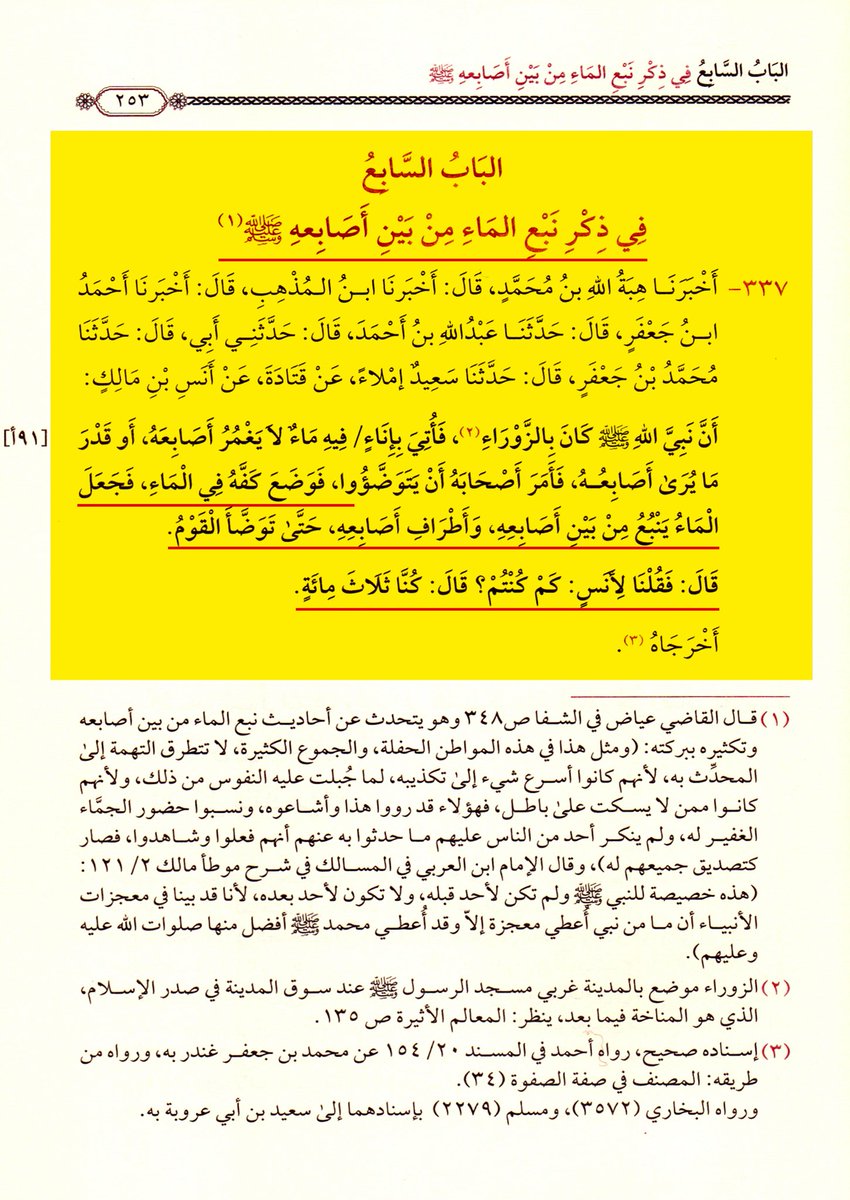 البَابُ السَّابِعُ فِي ذِكْرِ نَبْعِ المَاءِ مِنْ بَيْنِ أَصَابِعِهِ ﷺ
٢٥٣
البَابُ السَّابِعُ
فِي ذِكْرِ نَبْعِ المَاءِ مِنْ بَيْنِ أَصَابِعِهِ ﷺ (١)
٣٣٧- أَخْبَرَنَـا هِبَةُ اللهِ بنُ مُحَمَّدٍ، قَالَ: أَخْبَرَنَا ابـنُ المُذْهِبِ، قَالَ: أَخْبَرَنَا أَحْمَدُ
ابـنُ جَعْفَرٍ، قَالَ: حَدَّثَنَـا عَبْدُاللهِ بنُ أَحْمَدَ، قَالَ: حَدَّثَنِـي أَبِي، قَالَ: حَدَّثَنَا
مُحَمَّدُ بْنُ جَعْفَرٍ، قَالَ: حَدَّثَنَا سَعِيدٌ إمْلاءً، عَنْ قَتَادَةَ، عَنْ أَنَسِ بْنِ مَالِكٍ:
أَنَّ نَبِيَّ اللهِ ﷺ كَانَ بِالزَّوْرَاءِ(٢)، فَأُتِيَ بِإِنَاءٍ/ فِيهِ مَاءٌ لاَ يَغْمُرُ أَصَابِعَهُ، أَو قَدْرَ [٩١أ]
مَا يُرَىٰ أَصَابِعُـهُ، فَأَمَرَ أَصْحَابَهُ أَنْ يَتَوَضَّؤُوا، فَوَضَعَ كَفَّهُ فِي الْمَاءِ، فَجَعَلَ
الْمَاءُ يَنْبُعُ مِنْ بَيْنِ أَصَابِعِهِ، وَأَطْرَافِ أَصَابِعِهِ، حَتَّىٰ تَوَضَّأَ الْقَوْمُ.
قَالَ: فَقُلْنَا لِأَنَسٍ: كَمْ كُنْتُمْ؟ قَالَ: كُنَّا ثَلَاثَ مِائَةٍ.
أَخْرَجَاهُ (٣).
(١) قـال القاضي عياض في الشفا ص٣٤٨ وهو يتحدث عن أحاديـث نبع الماء من بين أصابعه
وتكثيره ببركته: (ومثل هذا في هذه المواطن الحفلة، والجموع الكثيرة، لا تتطرق التهمة إلىٰ
المحدِّث به، لأنهم كانوا أسـرع شيء إلىٰ تكذيبه، لما جُبلت عليه النفوس من ذلك، ولأنهم
كانـوا ممن لا يسـكت علىٰ باطـل، فهؤلاء قد رووا هذا وأشـاعوه، ونسـبوا حضور الجمَّاء
الغفيـر له، ولم ينكـر أحد من الناس عليهم مـا حدثوا به عنهم أنهم فعلوا وشـاهدوا، فصار
كتصديق جميعهم له)، وقال الإمام ابن العربي في المسـالك في شـرح موطأ مالك ٢/ ١٢١:
(هذه خصيصة للنبي ﷺ ولم تكن لأحد قبله، ولا تكون لأحد بعده، لأنا قد بينا في معجزات
الأنبيـاء أن مـا من نبي أُعطي معجزة إلاّ وقد أُعطـي محمد ﷺ أفضل منها صلوات الله عليه
وعليهم).
(٢) الزوراء موضع بالمدينة غربي مسـجد الرسـول ﷺ عند سـوق المدينة في صدر الإسـلام،
الذي هو المناخة فيما بعد، ينظر: المعالم الأثيرة ص ١٣٥.
(٣) إسـناده صحيح، رواه أحمد في المسند ٢٠/ ١٥٤ عن محمد بن جعفـر غندر به، ورواه من
طريقه: المصنف في صفة الصفوة (٣٤).
ورواه البخاري (٣٥٧٢)، ومسلم (٢٢٧٩) بإسنادهما إلىٰ سعيد بن أبي عروبة به.